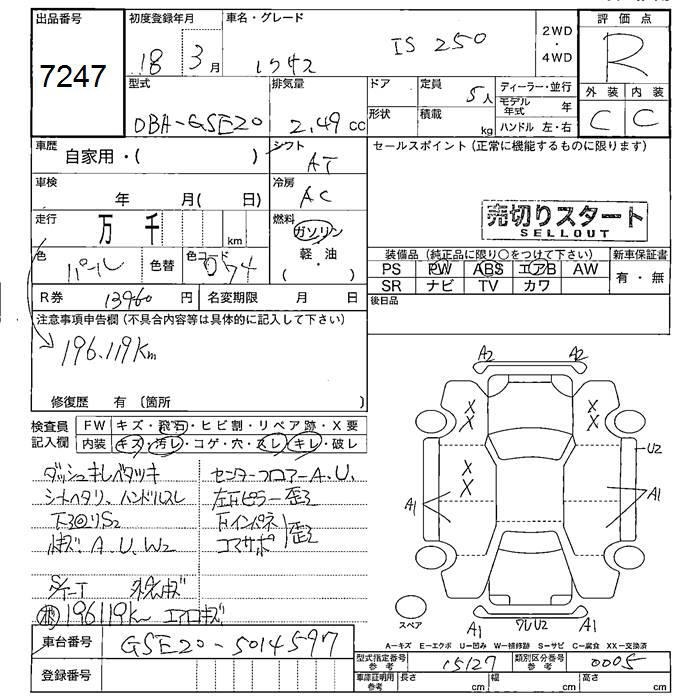 出品番号
7247
初度登録年月
18 3月
車名・グレード
IS 250
2WD・4WD
評価点
R
型式
DBA-GSE20
排気量
2.49cc
ドア
定員
5人
形状
積載
kg
ディーラー・並行
モデル年式 年
ハンドル 左・右
外装 内装
C C
車歴
自家用・( )
シフト
AT
車検
年 月( 日)
冷房
AC
走行
万 千 km
燃料
ガソリン
・
軽・油
( )
色
パール
色替
色コード
074
R券 13960円
名変期限 月 日
セールスポイント(正常に機能するものに限ります)
売切りスタート
SELLOUT
装備品(純正品に限り○をつけて下さい)
新車保証書
PS PW ABS エアB AW
有・無
SR ナビ TV カワ
後日品
注意事項申告欄(不具合内容等は具体的に記入して下さい)
196.119Km
修復歴 有(箇所 )
検査員記入欄
FW キズ・飛石・ヒビ割・リペア跡・X要
内装 キズ・汚レ・コゲ・穴・スレ・キレ・破レ
ダッシュキレベタツキ
センターフロアーA.U.
シートヘタリ、ハンドルスレ
左右ピラー歪
下回リS2
下インパネ
コアサポ
歪
A.U.W2
196119Km エアロキズ
車台番号 GSE20-5014597
登録番号
A2 A2
X X X X
X X
U2
A1 A1
スペア
A1 フレU2 A1
A−キズ E−エクボ U−凹み W−補修跡 S−サビ C−腐食 XX−交換済
型式指定番号 参考 15127
類別区分番号 参考 0005
車庫証明用 参考 長さ cm 幅 cm 高さ cm